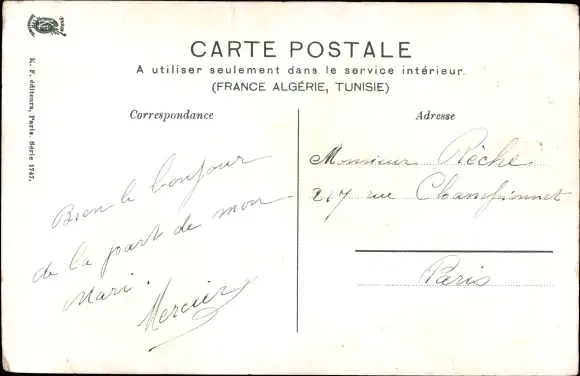 CARTE POSTALE
A utiliser seulement dans le service intérieur.
(FRANCE ALGÉRIE, TUNISIE)
Correspondance
Bien le bonjour
de la part de mon
Mari.
Mercier
Adresse
Monsieur Rèche
217 rue Championnet
Paris
K. F. éditeurs, Paris. Série 1747.